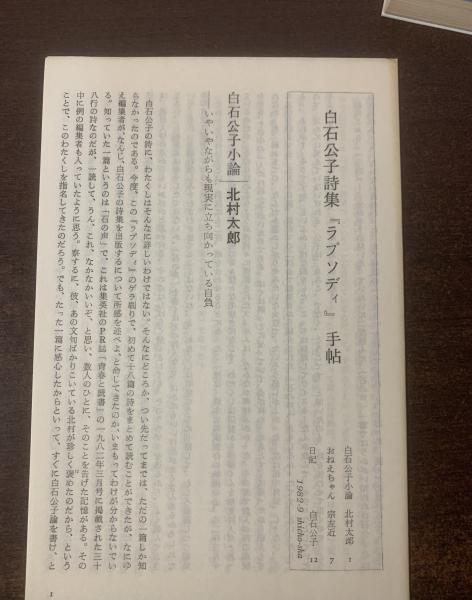 白石公子詩集『ラプソディ』手帖
白石公子小論　北村太郎　1
おねえちゃん　宗左近　7
日記　白石公子　12
1982·9 shicho-sha
白石公子小論　北村太郎
──いやいやながらも現実に立ち向かっている自負
白石公子の詩に、わたくしはそんなに詳しいわけではない。そんなにどころか、つい先だってまでは、ただの一篇しか知
らなかったのである。今度、この『ラプソディ』のゲラ刷りで、初めて十八篇の詩をまとめて読むことができたが、なにゆ
え編集者が、なんじ、白石公子の詩集を出版するについて所感を述べよ、と命じてきたのか、いまもってわけが分からないでい
る。知っていた一篇というのは「石の声」で、これは集英社のPR誌「青春と読書」の一九八二年三月号に掲載された三十
八行の詩なのだが、一読して、うん、これ、なかなかいいぞ、と思い、数人のひとに、そのことを告げた記憶がある。その
中に例の編集者も入っていたように思う。察するに、彼、あの文句ばかりこいている北村が珍しく褒めたのだから、という
ことで、このわたくしを指名してきたのだろう。でも、たった一篇に感心したからといって、すぐに白石公子論を書け、と
1